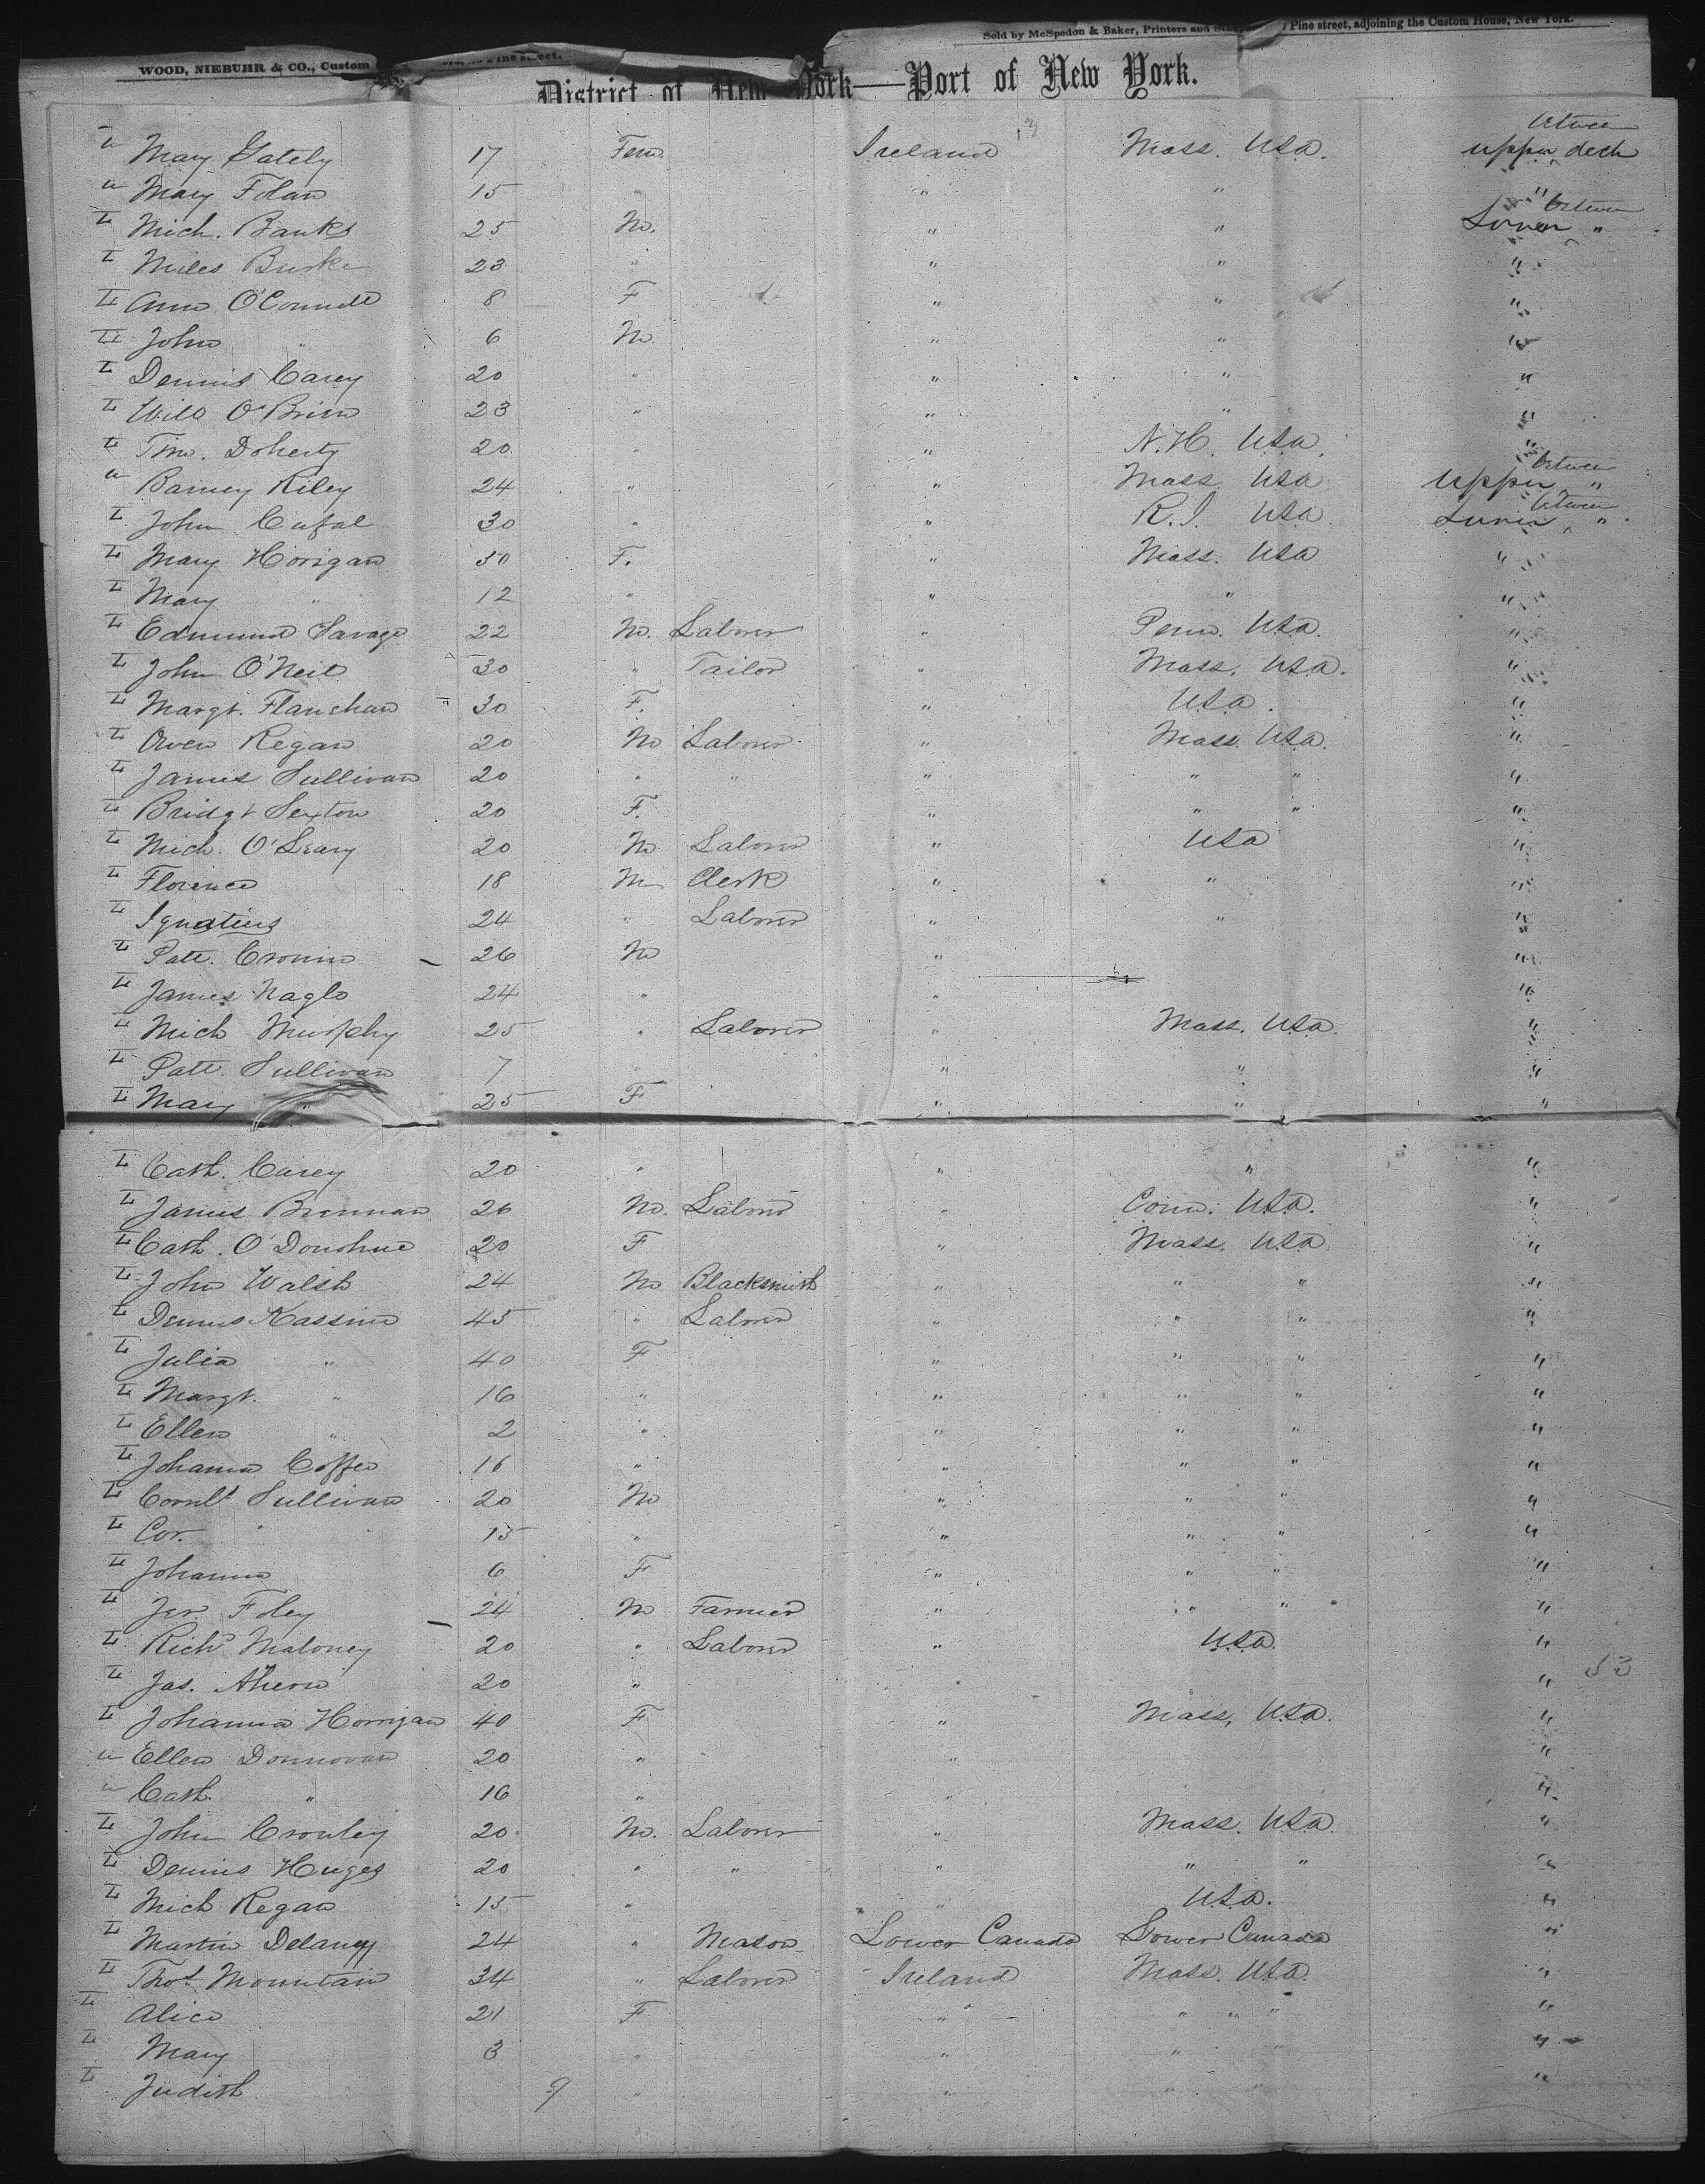 Sold by McSpedon & Baker, Printers and Pine street, adjoining the Custom House, New York.
WOOD, NIEBUHR & CO., Custom Pine street.
District of New York—Port of New York.
u Mary Gately 17 Fem. Ireland Mass. USA. upper between deck
u Mary Folan 15 " " " "
L Mich. Banks 25 M. " " Lower between "
L Miles Burke 23 " " " "
L Ann O'Connell 8 F " " "
L John " 6 M " " "
L Dennis Carey 20 " " " "
L Will O'Brien 23 " " " "
L Tim. Doherty 20 " " N.H. USA. "
u Barney Riley 24 " " Mass USA upper between "
L John Cufal 30 " " R.I. USA Lower between "
L Mary Horigan 30 F. " Mass. USA "
L Mary " 12 " " " "
L Edmund Savage 22 M. Laborer " Penn. USA. "
L John O'Neil 30 " Tailor " Mass. USA. "
L Margt. Flanehan 30 F. " USA. "
L Owen Regan 20 M Laborer " Mass. USA. "
L James Sullivan 20 " " " " " "
L Bridgt Sexton 20 F. " " " "
L Mich. O'Leary 20 M Laborer " USA "
L Florence 18 M Clerk " " "
L Ignatius 24 " Laborer " " "
L Patt. Cronin 26 M " "
L James Naglo 24 " " "
L Mich Murphy 25 " Laborer " Mass. USA. "
L Patt. Sullivan 7 " " " "
L Mary " 25 F " " "
L Cath. Carey 20 " " " "
L James Brennan 26 M. Laborer " Conn. USA. "
L Cath. O'Donohue 20 F " Mass. USA. "
L John Walsh 24 M Blacksmith " " " "
L Dennis Kassine 45 " Laborer " " " "
L Julia " 40 F " " " "
L Margt. " 16 " " " " "
L Ellen " 2 " " " " "
L Johanna Coffee 16 " " " " "
L Cornls Sullivan 20 M " " " "
L Cor. " 15 " " " " "
L Johanna 6 F " " " "
L Jer. Foley 24 M Farmer " " " "
L Richd Maloney 20 " Laborer " USA. "
L Jas. Ahern 20 " " "
L Johanna Horrigan 40 F " Mass. USA. "
u Ellen Donnovan 20 " " "
u Cath. " 16 " " "
L John Crowley 20 M. Laborer " Mass. USA. "
L Dennis Huges 20 " " " " " "
L Mich Regan 15 " " USA. "
L Martin Delaney 24 " Mason Lower Canada Lower Canada "
L Thos Mountain 34 " Laborer Ireland Mass. USA. "
L Alice 21 F " " " " "
L Mary 3 " " " " "
L Judith 9 " " " " "